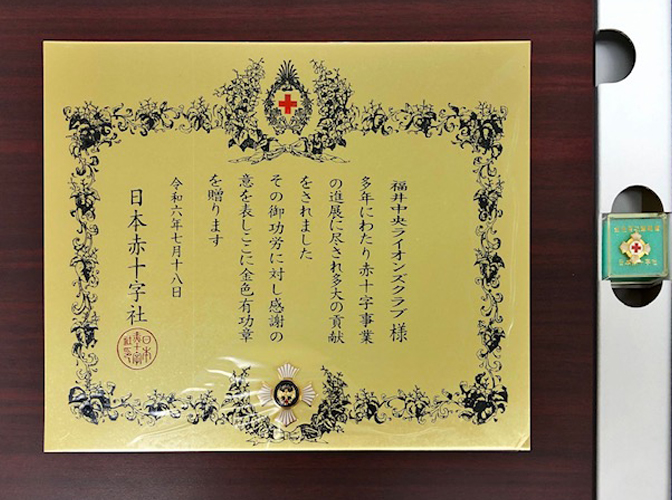 福井中央ライオンズクラブ 様
多年にわたり赤十字事業
の進展に尽され多大の貢献
をされました
その御功労に対し感謝の
意を表しここに金色有功章
を贈ります
令和六年七月十八日
日本赤十字社